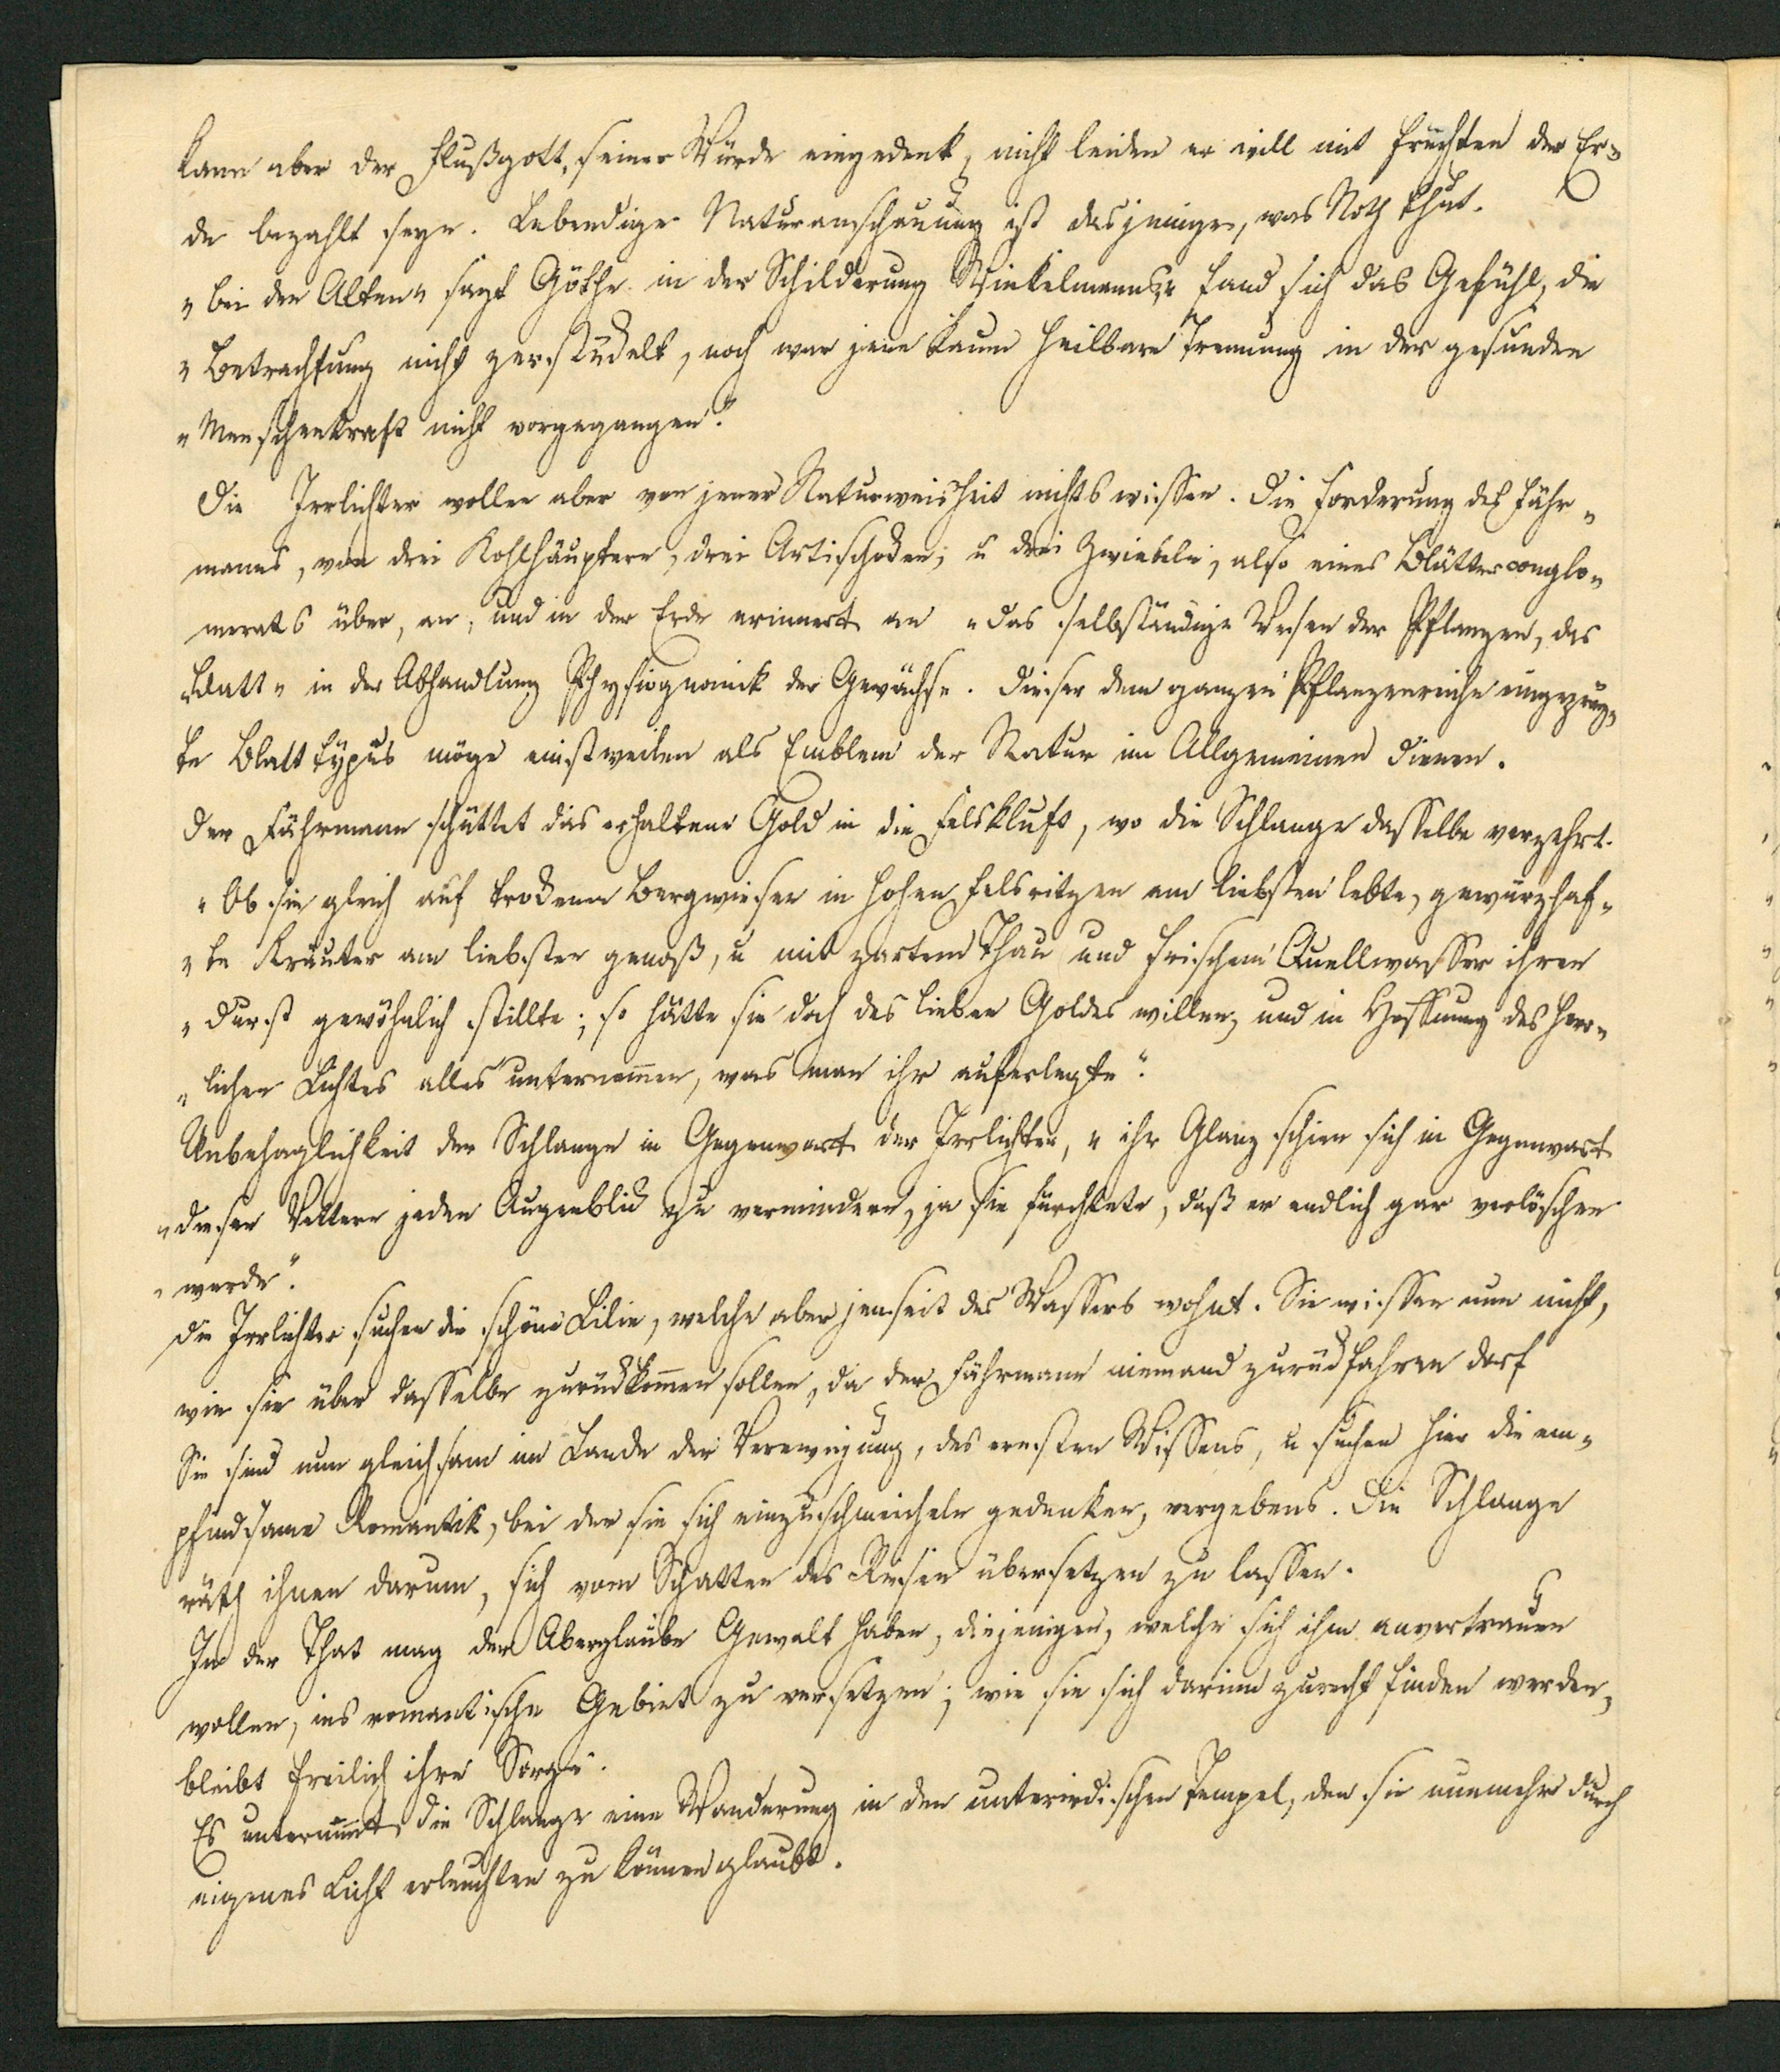 kann aber der Flußgott, seiner Würde eingedenk, nicht leiden er will mit Früchten der Er-
de bezahlt seyn. Lebendige Naturanschauung ist dasjenige, was Noth thut.
"bei den Alten" sagt Göthe in der Schilderung Winkelmanns, "fand sich das Gefühl, die
"Betrachtung nicht zerstückelt, noch war jene kaum heilbare Trennung in der gesunden
"Menschenkraft nicht vorgegangen".
Die Irrlichter wollen aber von jener Naturweisheit nichts wissen. Die Forderung des Fähr-
manns, von drei Kohlhäuptern, drei Artischocken, u drei Zwiebeln, also eines Blätterconglo-
merats über, an, und in der Erde erinnert an "das selbständige Wesen der Pflanzen, das
"Blatt" in der Abhandlung Physiognomick der Gewächse. Dieser dem ganzen Pflanzenreiche eingepräg-
te Blatttypus möge einstweilen als Emblem der Natur im Allgemeinen dienen.
Der Fährmann schüttet das erhaltene Gold in die Felskluft, wo die Schlange dasselbe verzehrt.
"Ob sie gleich auf trockenen Bergwiesen in hohen Felsritzen am liebsten lebte, gewürzhaf-
"te Kräuter am liebsten genoß, u mit zartem Thau und frischem Quellwasser ihren
"Durst gewöhnlich stillte; so hätte sie doch des lieben Goldes willen, und in Hoffnung des herr-
"lichen Lichtes alles unternommen, was man ihr auferlegte".
Unbehaglichkeit der Schlange in Gegenwart der Irrlichter, "ihr Glanz schien sich in Gegenwart
"dieser Vettern jeden Augenblick zu vermindern, ja sie fürchtete, daß er endlich gar verlöschen
"werde".
Die Irrlichter suchen die schöne Lilie, welche aber jenseit des Wassers wohnt. Sie wissen nun nicht,
wie sie über dasselbe zurückkommen sollen, da der Fährmann niemand zurückfahren darf
Sie sind nun gleichsam im Lande der Verewigung, des ernsten Wissens, u suchen hier die em-
pfindsame Romantik, bei der sie sich einzuschmeicheln gedenken, vergebens. Die Schlange
räth ihnen darum, sich vom Schatten des Riesen übersetzen zu lassen.
In der That mag der Aberglaube Gewalt haben, diejenigen, welche sich ihm anvertrauen
wollen, ins romantische Gebiet zu versetzen; wie sie sich darinn zurecht finden werden,
bleibt freilich ihre Sorge.
Es unternimmt die Schlange eine Wanderung in den unterirdischen Tempel, den sie nunmehr durch
eigenes Licht erleuchten zu können glaubt.